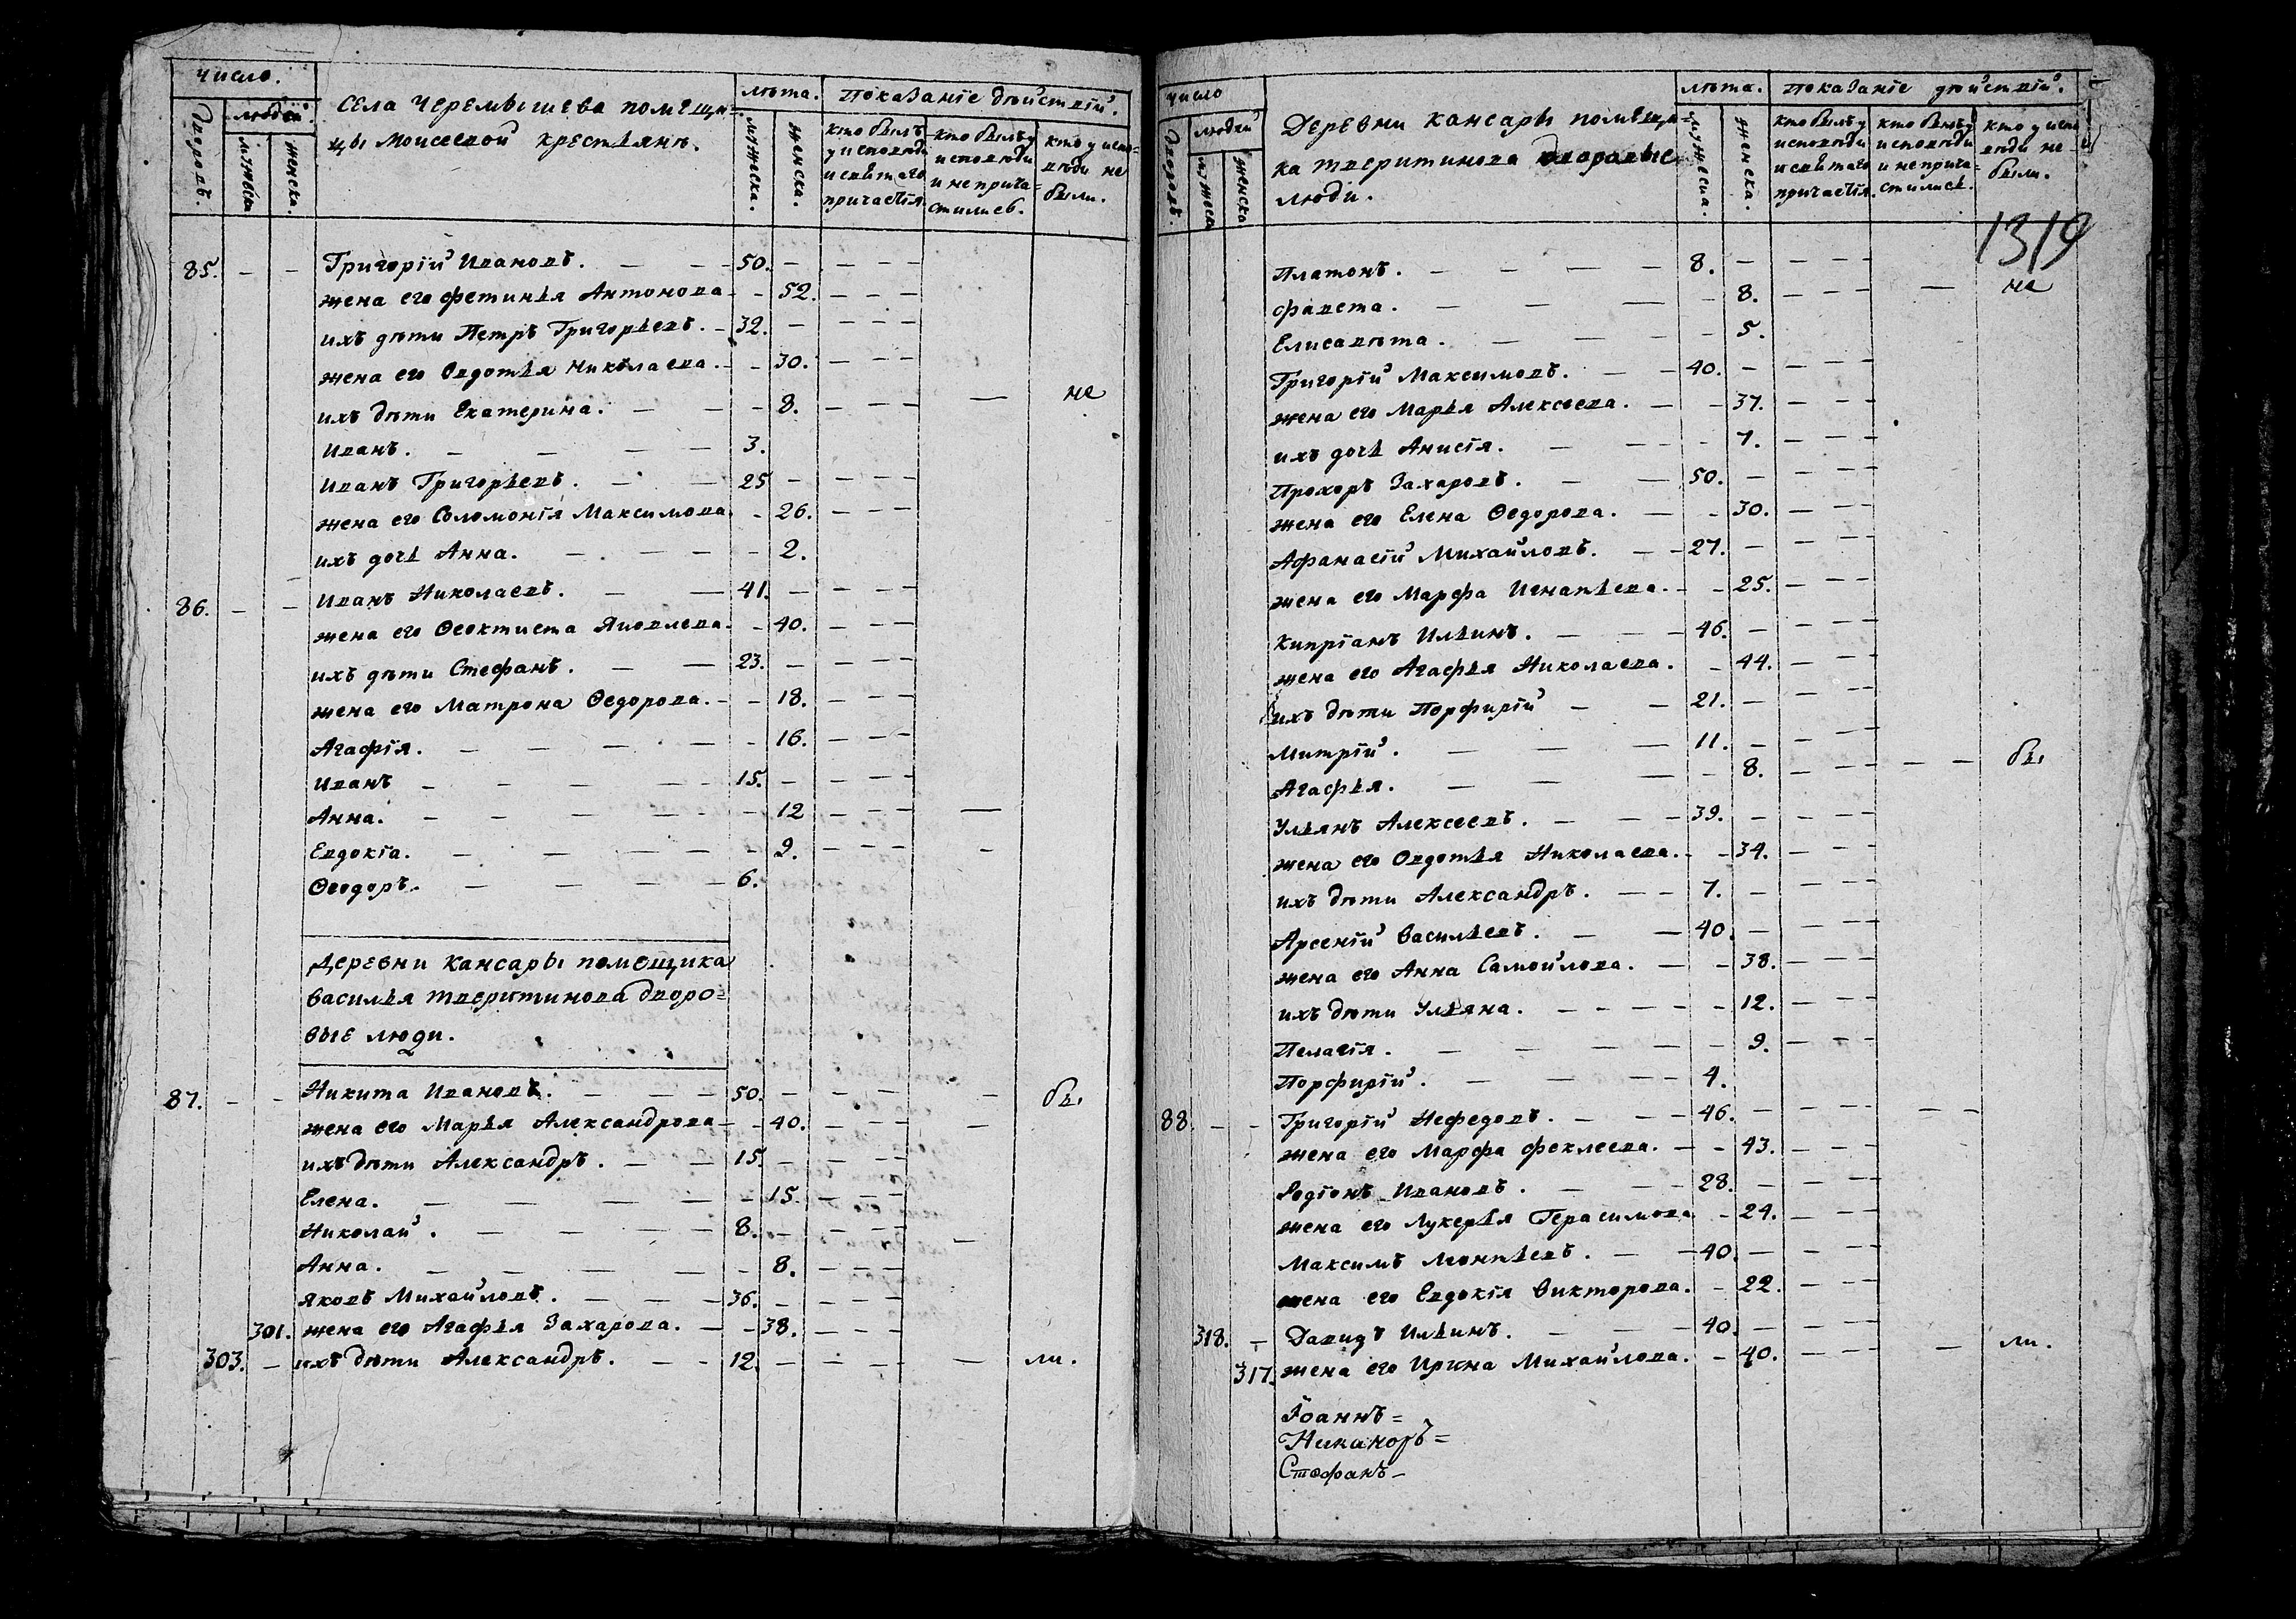 число.
дворовъ.
людей.
мужеска
женска.
СЕЛА ЧЕРЕМЫШЕВА ПОМЕЩИ=
цы Моисевой крестьянъ.
лѣта.
мужеска.
женска.
Показанїе дѣйствїй.
кто былъ
у исповѣди
и святаго
причастїя
кто былъ у
исповѣди
и не прича=
стились.
кто у испо=
вѣди не
были.
85. – – Григорїй Ивановъ. – – 50. – – – –
жена его Фетинья Антонова – – 52. – – –
ихъ дѣти Петръ Григорьевъ. – 32. – – – –
жена его Овдотья Николаева. – – 30. – – –
ихъ дѣти Екатерина. – – – 8. – – – – не
Иванъ. – – – – 3.
Иванъ Григорьевъ. – – 25 – – – –
жена его Соломонїя Максимова. – 26. – – –
ихъ дочь Анна. – – – – 2.
86. – – Иванъ Николаевъ. – – 41. – – – –
жена его Ѳеоктиста Яковлева. – 40. – – –
ихъ дѣти Стефанъ. – – 23. – – – –
жена его Матрона Ѳедорова. – – 18. – – –
Агафїя. – – – – – 16. – – –
Иванъ – – – – – 15. – – – –
Анна. – – – – – – 12 – – – –
Евдокїа. – – – – – 9. – – – –
Ѳеодоръ. – – – – 6.
ДЕРЕВНИ Кансары помещика
Василья Тверитинова дворо=
вые люди.
87. – – Никита Ивановъ. – – – 50. – – – – – бы
жена его Марья Александрова – – 40. – – – –
ихъ дѣти Александръ. – – 15. – – – –
Елена. – – – – – 15. – – –
Николай. – – – – 8. – – – – –
Анна. – – – – – 8. – – –
Яковъ Михайловъ. – – – 36. – – – –
301. жена его Агафья Захарова. – – 38. – – –
303. – ихъ дѣти Александръ. – – 12. – – – – – ли.
число
дворовъ.
людей
мужеска
женска.
Деревни Кансары помѣщи=
ка Тверитинова дворовые
люди.
лѣта.
мужеска.
женска.
Показанїе дѣйствїй.
кто былъ у
исповѣди
и святаго
причастїя.
кто былъ у
исповѣди
и не прича=
стились.
кто у испо
вѣди не
были.
1319
Платонъ. – – – – 8. – – – –
Фавста. – – – – 8. – – – – не
Елисавѣта. – – – – 5.
Григорїй Максимовъ. – – 40. – – – –
жена его Марья Алексеева. – – 37. – – –
ихъ дочь Анисїя. – – – – 7. – – –
Прохоръ Захаровъ. – – 50. – – – –
жена его Елена Ѳедорова. – – 30. – – –
Афанасїй Михайловъ. – – 27. – – – –
жена его Марфа Игнатьева. – – 25. – – –
Кипрїанъ Ильинъ. – – – 46. – – – –
жена его Агафья Николаева. – 44. – – –
ихъ дѣти Порфирїй – – 21. – – – –
Митрїй. – – – 11. – – – –
Агафья. – – – – 8. – – – – – бы
Ульянъ Алексеевъ. – – – 39. – – – –
жена его Овдотья Николаева. – – 34. – – –
ихъ дѣти Александръ. – – 7. – – – –
Арсенїй Васильевъ. – – 40. – – – –
жена его Анна Самойлова. – – 38. – – –
ихъ дѣти Ульяна. – – – – – 12. – – –
Пелагїя. – – – – – 9. – – –
Порфирїй. – – – – 4.
88. – – Григорїй Нефедовъ. – – – 46. – – – – – –
жена его Марфа Феклеева. – – 43. – – –
Родїонъ Ивановъ. – – – 28. – – – –
жена его Лукерья Герасимова – 24. – – –
Максимъ Леонтьевъ. – – 40. – – – –
жена его Евдокїя Викторова. – 22. – – –
318. – Давидъ Ильинъ. – – – 40. – – – –
317. жена его Ирина Михайлова. – 40. – – – – ли.
Іоаннъ=
Никаноръ=
Стефанъ–